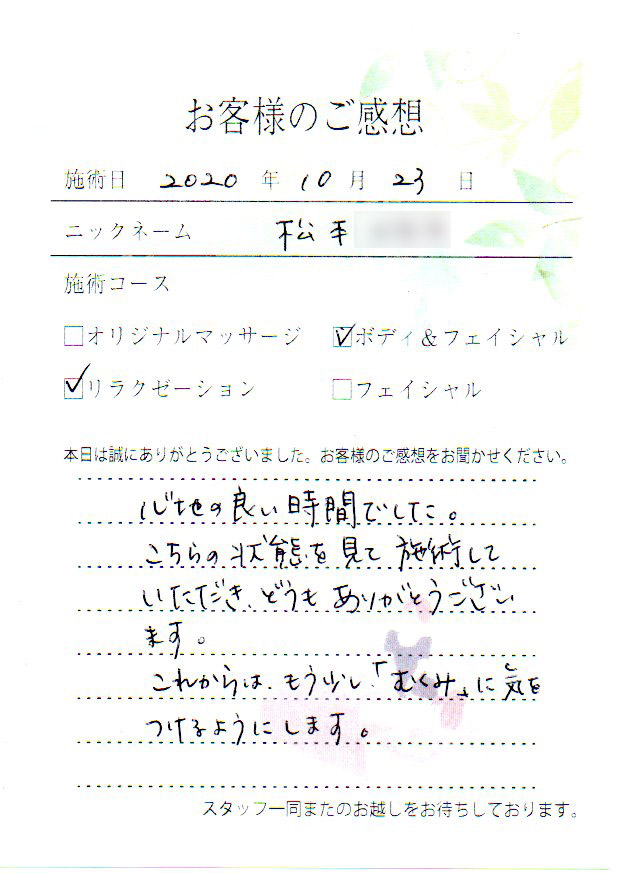 お客様のご感想
施術日 2020 年 10 月 23 日
ニックネーム 松本
施術コース
□オリジナルマッサージ ☑ボディ&フェイシャル
☑リラクゼーション □フェイシャル
本日は誠にありがとうございました。お客様のご感想をお聞かせください。
心地の良い時間でした。
こちらの状態を見て施術して
いただき、どうもありがとうござい
ます。
これからは、もう少し「むくみ」に気を
つけるようにします。
スタッフ一同またのお越しをお待ちしております。